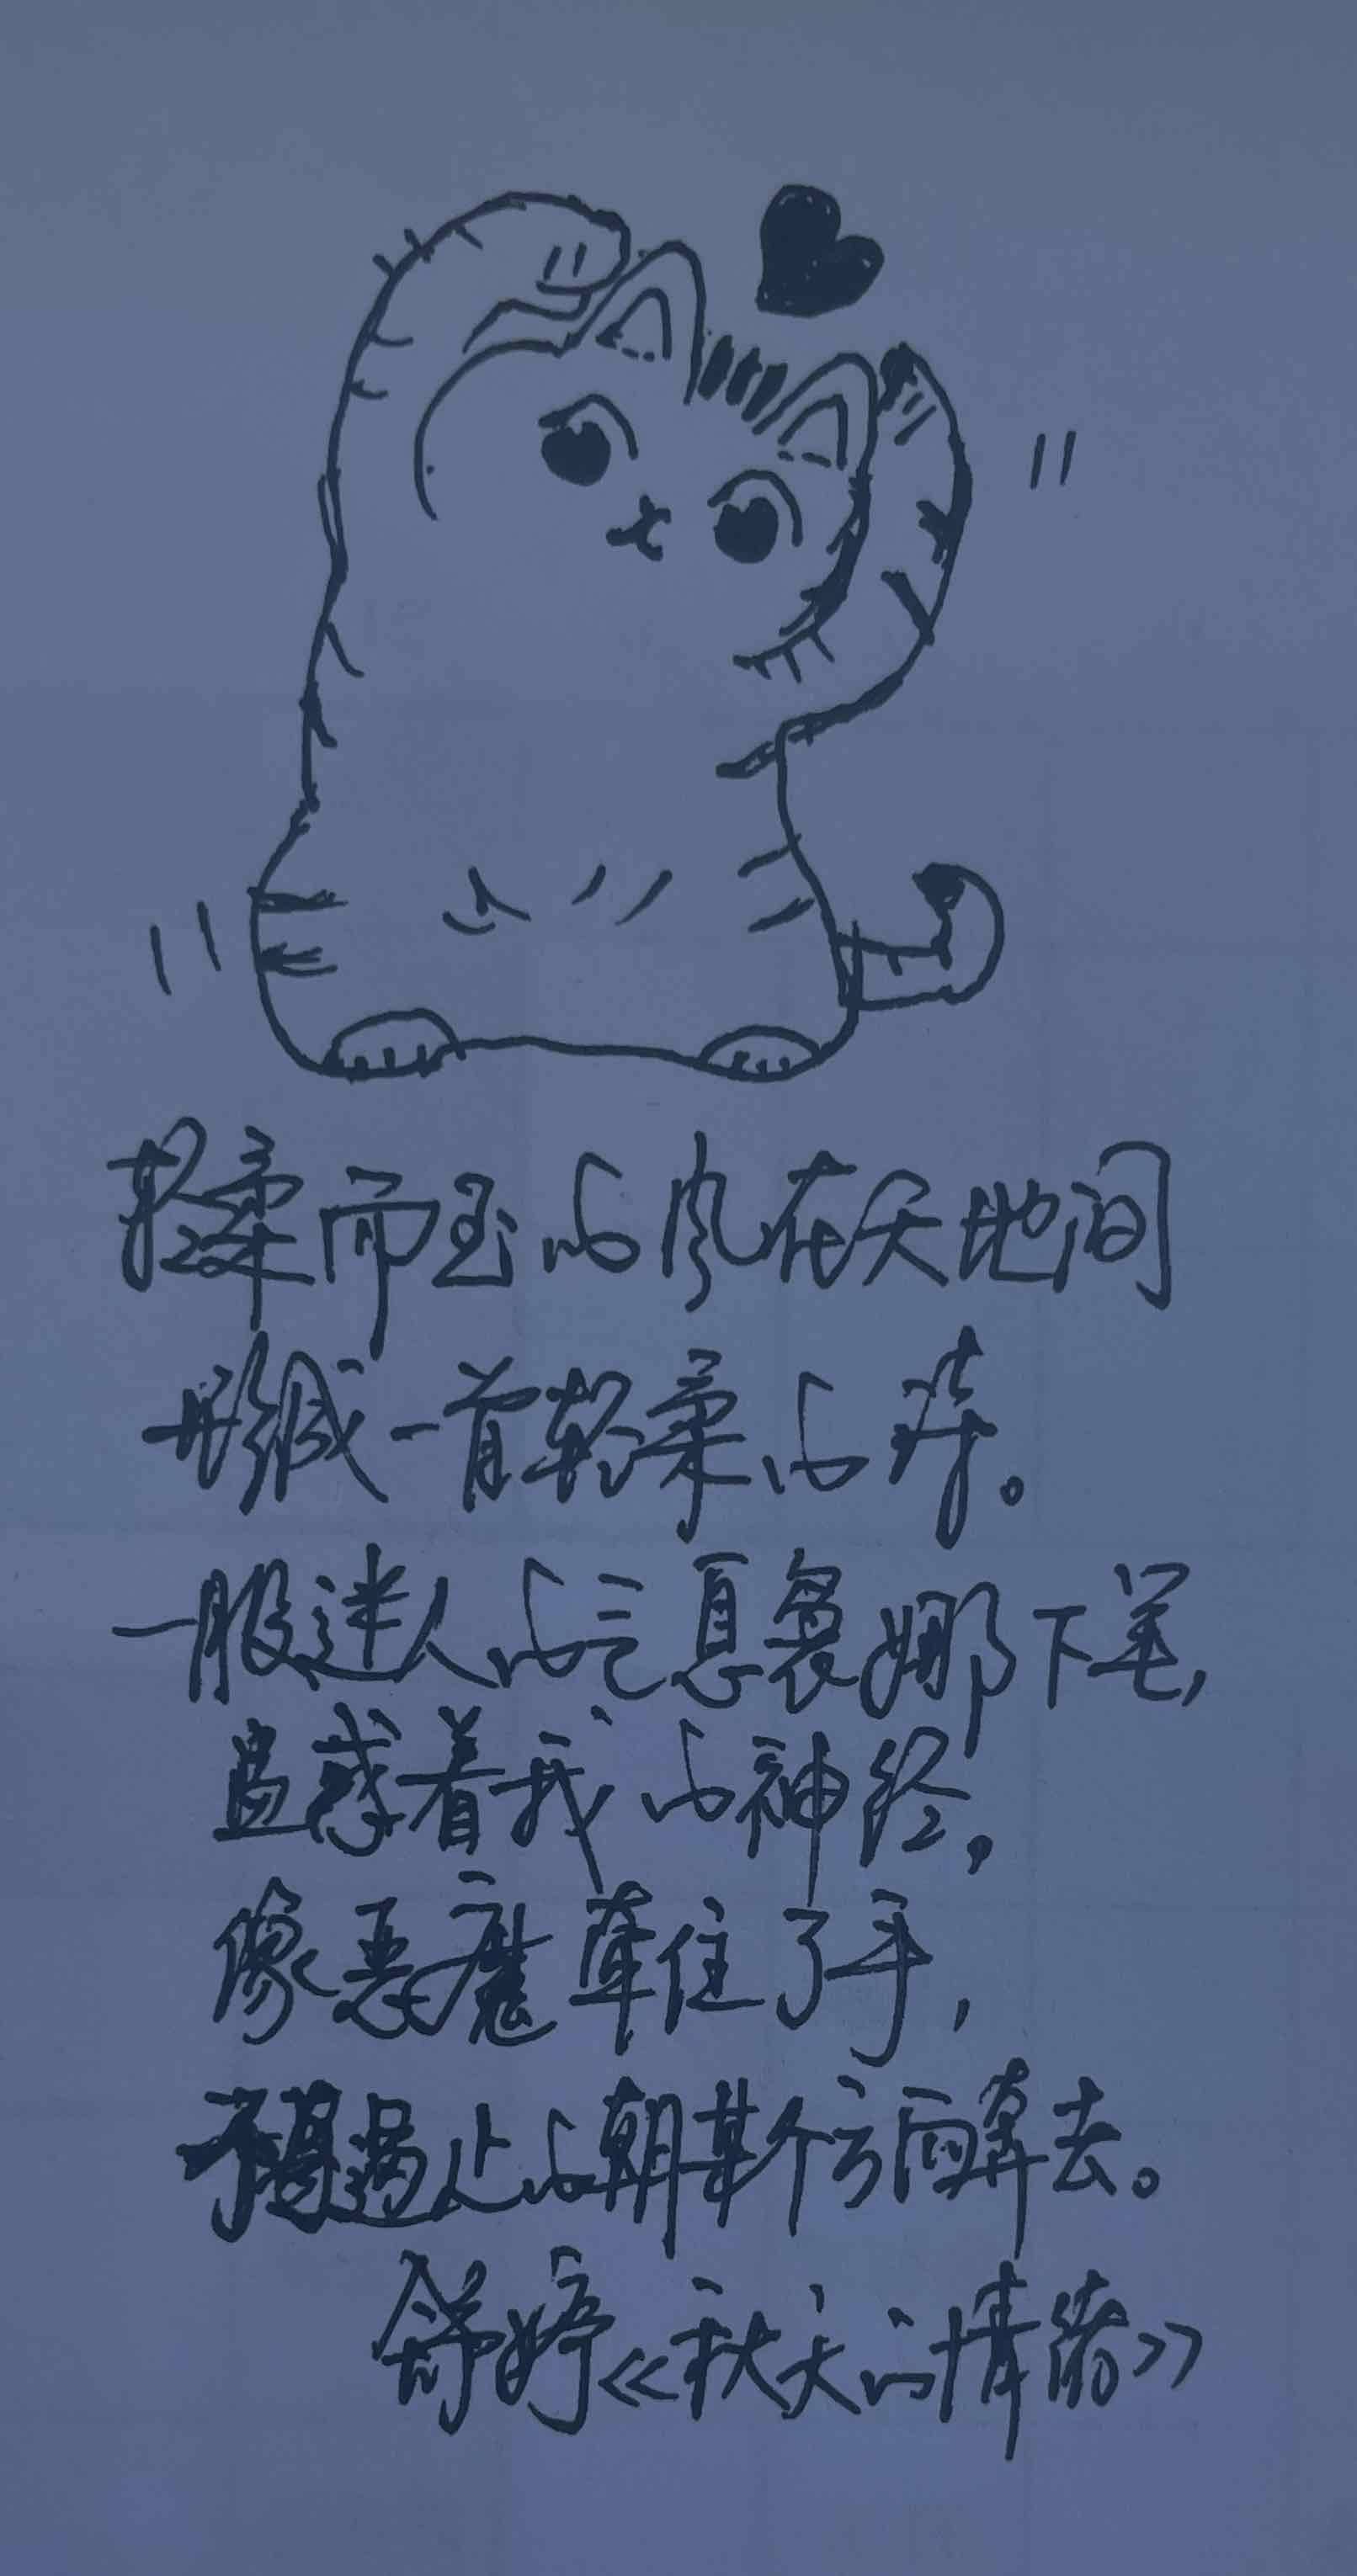 轻柔而至的风在天地间
形成一首轻柔的诗。
一股迷人的气息袅娜下笔,
蛊惑着我的神经。
像恶魔牵住了手,
不得遏止的朝某个方面奔去。
舒婷《秋天的情绪》